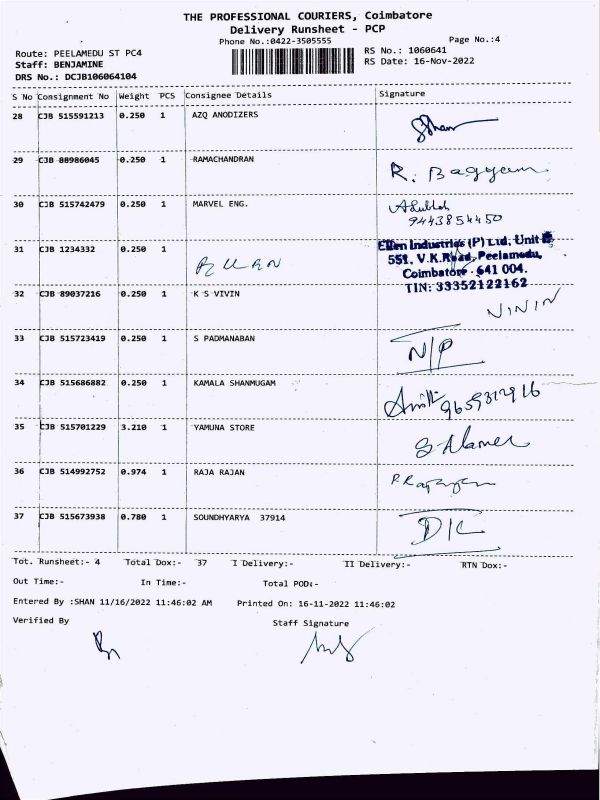 THE PROFESSIONAL COURIERS, Coimbatore
Delivery Runsheet - PCP
Phone No.:0422-3505555 Page No.:4
Route: PEELAMEDU ST PC4 RS No.: 1060641
Staff: BENJAMINE RS Date: 16-Nov-2022
DRS No.: DCJB106064104
S No Consignment No Weight PCS Consignee Details Signature
28 CJB 515591213 0.250 1 AZQ ANODIZERS
29 CJB 88986045 0.250 1 RAMACHANDRAN R.
30 CJB 515742479 0.250 1 MARVEL ENG.
9443854450
31 CJB 1234332 0.250 1
Ellen Industries (P) Ltd. Unit
551, V.K.Road, Peelamedu,
Coimbatore - 641 004.
TIN: 33352122162
32 CJB 89037216 0.250 1 K S VIVIN
33 CJB 515723419 0.250 1 S PADMANABAN N/P
34 CJB 515686882 0.250 1 KAMALA SHANMUGAM
35 CJB 515701229 3.210 1 YAMUNA STORE
36 CJB 514992752 0.974 1 RAJA RAJAN
37 CJB 515673938 0.780 1 SOUNDHYARYA 37914
Tot. Runsheet:- 4 Total Dox:- 37 I Delivery:- II Delivery:- RTN Dox:-
Out Time:- In Time:- Total POD:-
Entered By :SHAN 11/16/2022 11:46:02 AM Printed On: 16-11-2022 11:46:02
Verified By Staff Signature